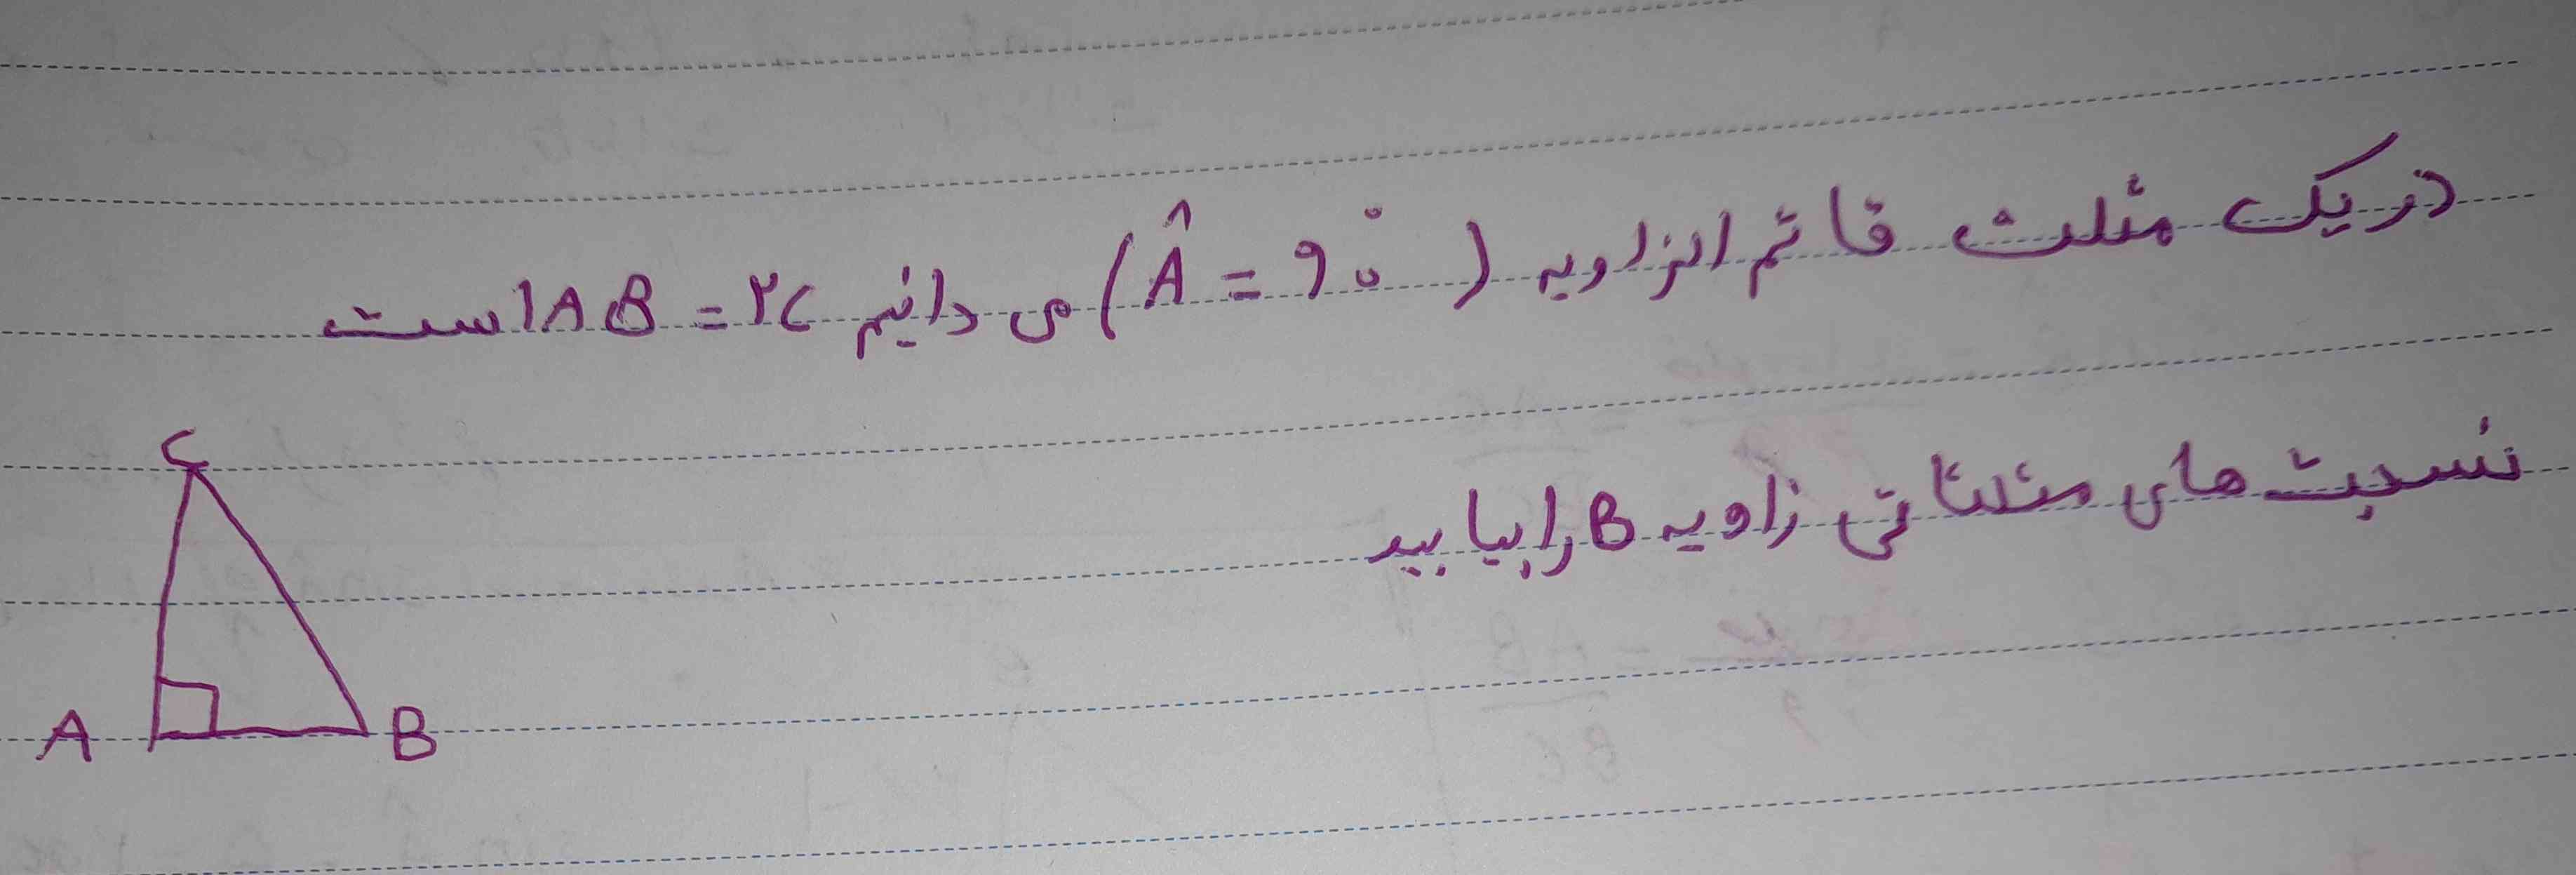 در یک مثلث قائم الزاویه (Â = 90°) می دانیم ۲C = AB است
نسبت های مثلثاتی زاویه B را بیابید
C
A
B